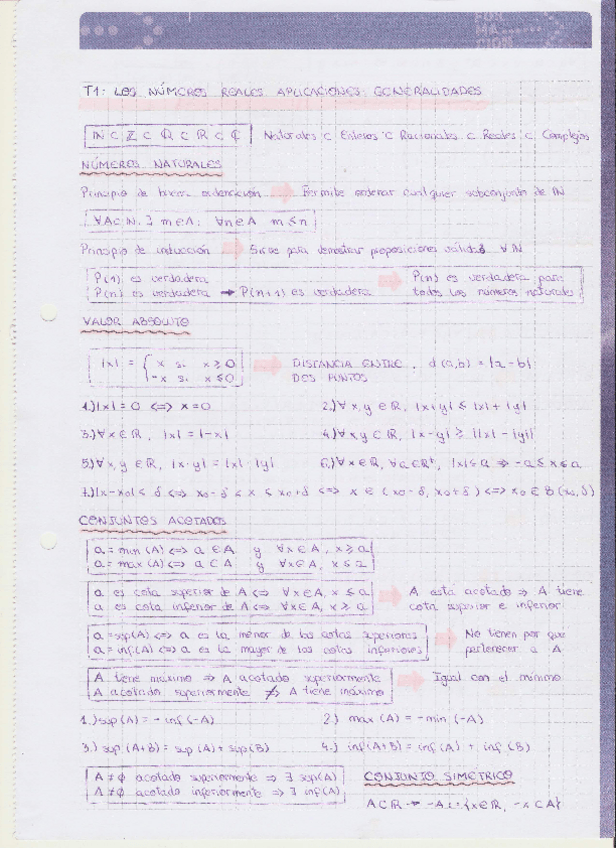 FOR
MA
CION
T1: LOS NÚMEROS REALES APLICACIONES, GENERALIDADES
ℕ ⊂ ℤ ⊂ ℚ ⊂ ℝ ⊂ ₵ Naturales ⊂ Enteros ⊂ Racionales ⊂ Reales ⊂ Complejos
NÚMEROS NATURALES
Principio de buena ordenación → Permite ordenar cualquier subconjunto de ℕ
∀A⊂ℕ, ∃ m∈A: ∀n∈A m≤n
Principio de inducción → Sirve para demostrar proposiciones válidas ∀ℕ
P(1) es verdadera → P(n) es verdadera para
P(n) es verdadera → P(n+1) es verdadera todos los números naturales
VALOR ABSOLUTO
|x| = { x si x≥0 → DISTANCIA ENTRE, d(a,b) = |a-b|
-x si x≤0 DOS PUNTOS
1.) |x| = 0 <=> x=0 2.) ∀x,y∈ℝ, |x+y| ≤ |x| + |y|
3.) ∀x∈ℝ, |x| = |-x| 4.) ∀x,y∈ℝ, |x-y| ≥ ||x|-|y||
5.) ∀x,y∈ℝ, |x·y| = |x|·|y| 6.) ∀x∈ℝ, ∀a∈ℝ⁺, |x|≤a => -a≤x≤a
7.) |x-x₀|<δ <=> x₀-δ < x < x₀+δ <=> x∈(x₀-δ, x₀+δ) <=> x₀∈B(x₀,δ)
CONJUNTOS ACOTADOS
a = min(A) <=> a∈A y ∀x∈A, x≥a
a = max(A) <=> a∈A y ∀x∈A, x≤a
a es cota superior de A <=> ∀x∈A, x≤a → A esta acotado => A tiene
a es cota inferior de A <=> ∀x∈A, x≥a cota superior e inferior
a = sup(A) <=> a es la menor de las cotas superiores → No tienen por que
a = inf(A) <=> a es la mayor de las cotas inferiores pertenecer a A
A tiene máximo => A acotado superiormente → Igual con el mínimo
A acotado superiormente ≠> A tiene máximo
1.) sup(A) = -inf(-A) 2.) max(A) = -min(-A)
3.) sup(A+B) = sup(A) + sup(B) 4.) inf(A+B) = inf(A) + inf(B)
A≠∅ acotado superiormente => ∃ sup(A) CONJUNTO SIMETRICO
A≠∅ acotado inferiormente => ∃ inf(A) A⊂ℝ → -A = {x∈ℝ, -x∈A}